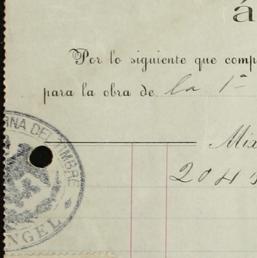 á
Por lo siguiente que comp
para la obra de la 1ª
Mix
204
NA DEL TIMBRE
NGEL